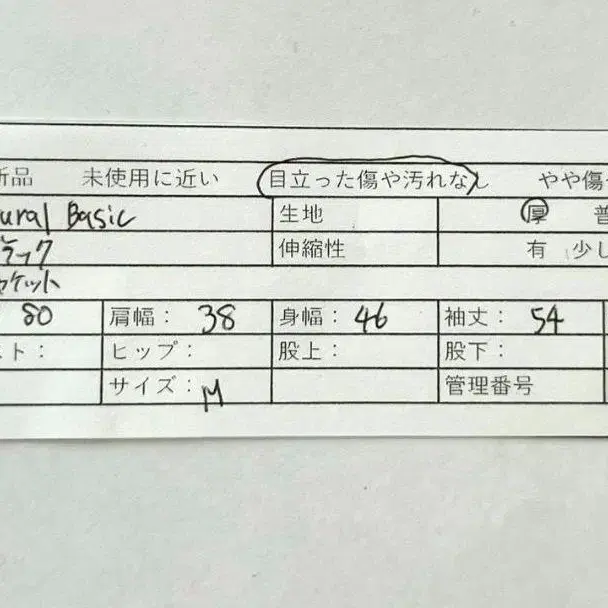 新品 未使用に近い 目立った傷や汚れなし やや傷
ural Basic 生地 厚 普
ラック 伸縮性 有 少し
ャケット
80 肩幅： 38 身幅： 46 袖丈： 54
スト： ヒップ： 股上： 股下：
サイズ： M 管理番号